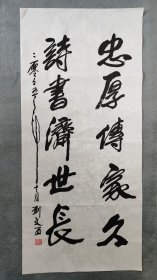 忠厚傳家久
詩書濟世長
二零零五年十月劉文西